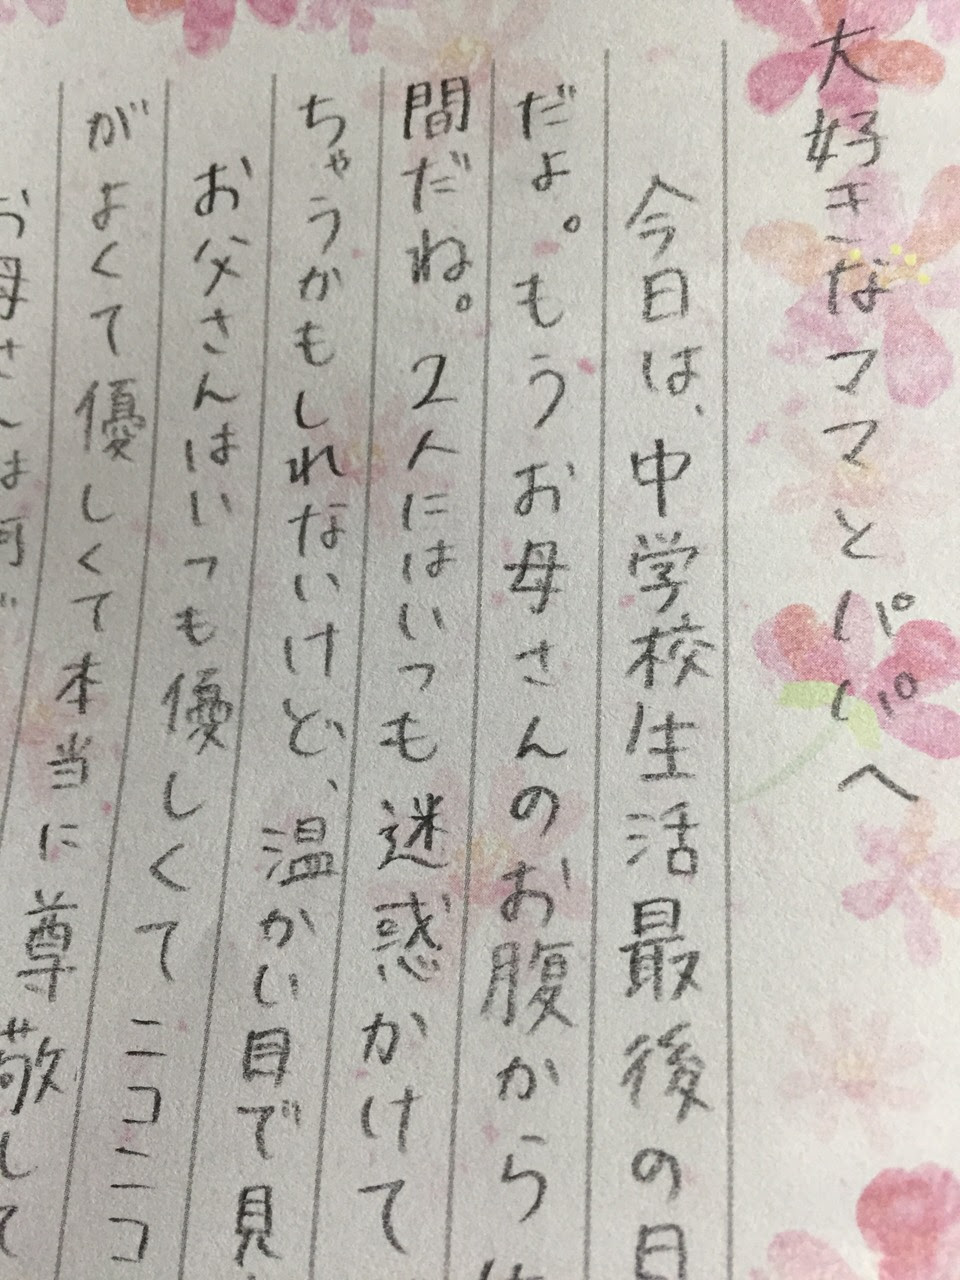 大好きなママとパパへ
今日は、中学校生活最後の日
だよ。もうお母さんのお腹から
間だね。2人にはいつも迷惑かけて
ちゃうかもしれないけど、温かい目で見
お父さんはいつも優しくてニコニコ
がよくて優しくて本当に尊敬して
お母さんは何